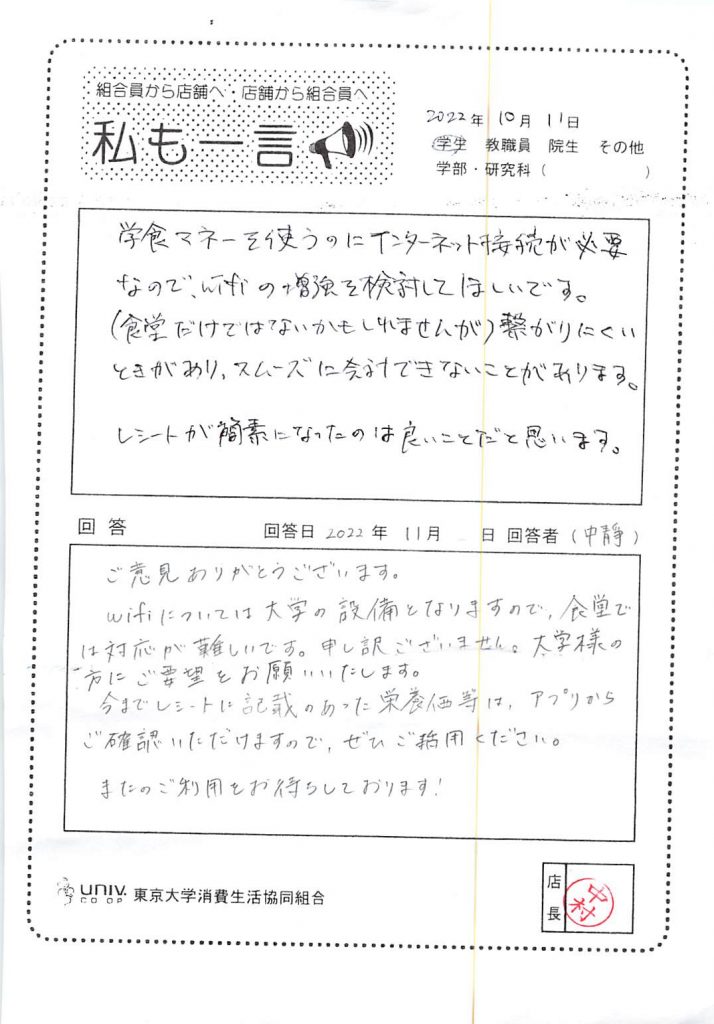 組合員から店舗へ・店舗から組合員へ
私も一言
2022年 10月 11日
学生 教職員 院生 その他
学部・研究科（ ）
学食マネーを使うのにインターネット接続が必要
なので、wifiの増強を検討してほしいです。
(食堂だけではないかもしれませんが)繋がりにくい
ときがあり、スムーズに会計できないことがあります。
レシートが簡素になったのは良いことだと思います。
回答 回答日 2022年 11月 日 回答者（中静）
ご意見ありがとうございます。
wifiについては大学の設備となりますので、食堂で
は対応が難しいです。申し訳ございません。大学様の
方にご要望をお願いいたします。
今までレシートに記載のあった栄養価等は、アプリから
ご確認いただけますので、ぜひご活用ください。
またのご利用をお待ちしております!
UNIV. CO OP 東京大学消費生活協同組合
店長
中村